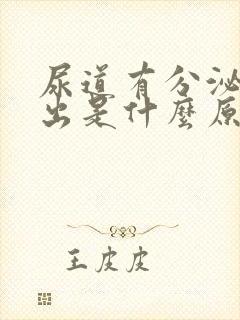 尿道有分泌
出是什麼原
王皮皮